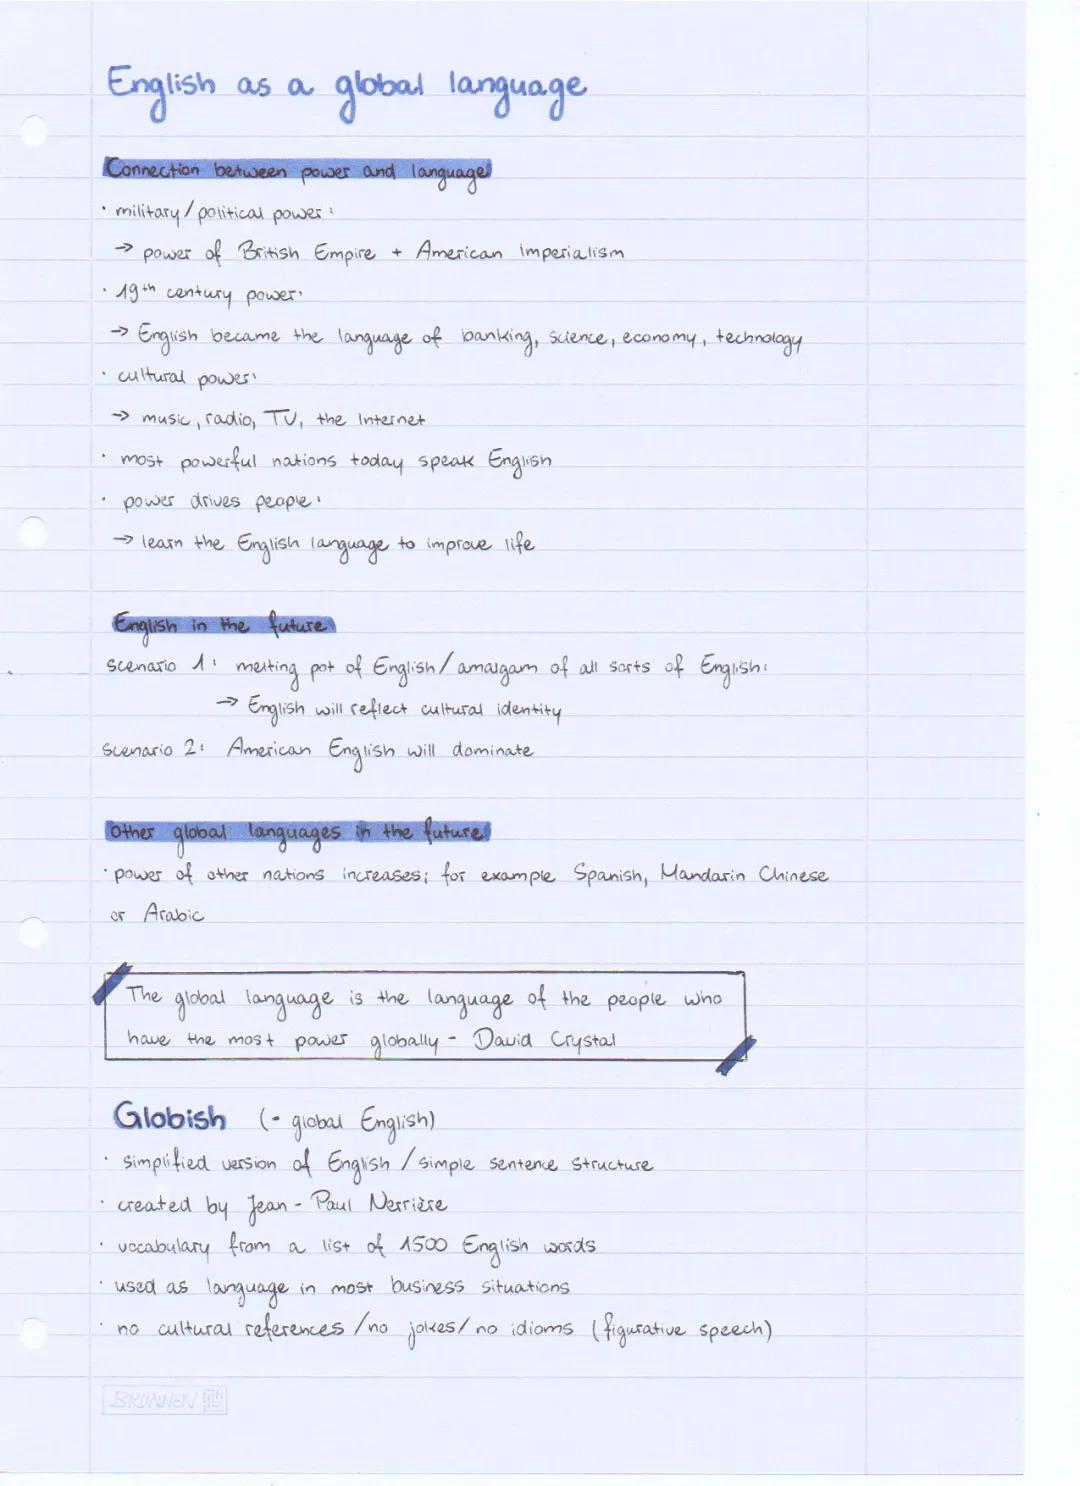 English as a global language
Connection between power and language
· military/political power:
→ power of British Empire + American Imperialism
· 19th century power:
→ English became the language of banking, science, economy, technology
· cultural power:
→ music, radio, TV, the Internet
· most powerful nations today speak English
· power drives people:
→ learn the English language to improve life
English in the future
scenario 1: melting pot of English/amalgam of all sorts of English:
→ English will reflect cultural identity
scenario 2: American English will dominate
Other global languages in the future
· power of other nations increases; for example Spanish, Mandarin Chinese
or Arabic
The global language is the language of the people who
have the most power globally - David Crystal
Globish (- global English)
· simplified version of English / simple sentence structure
· created by Jean-Paul Nerrière
· vocabulary from a list of 1500 English words
· used as language in most business situations
· no cultural references /no jokes/ no idioms (figurative speech)
BRUNNEN